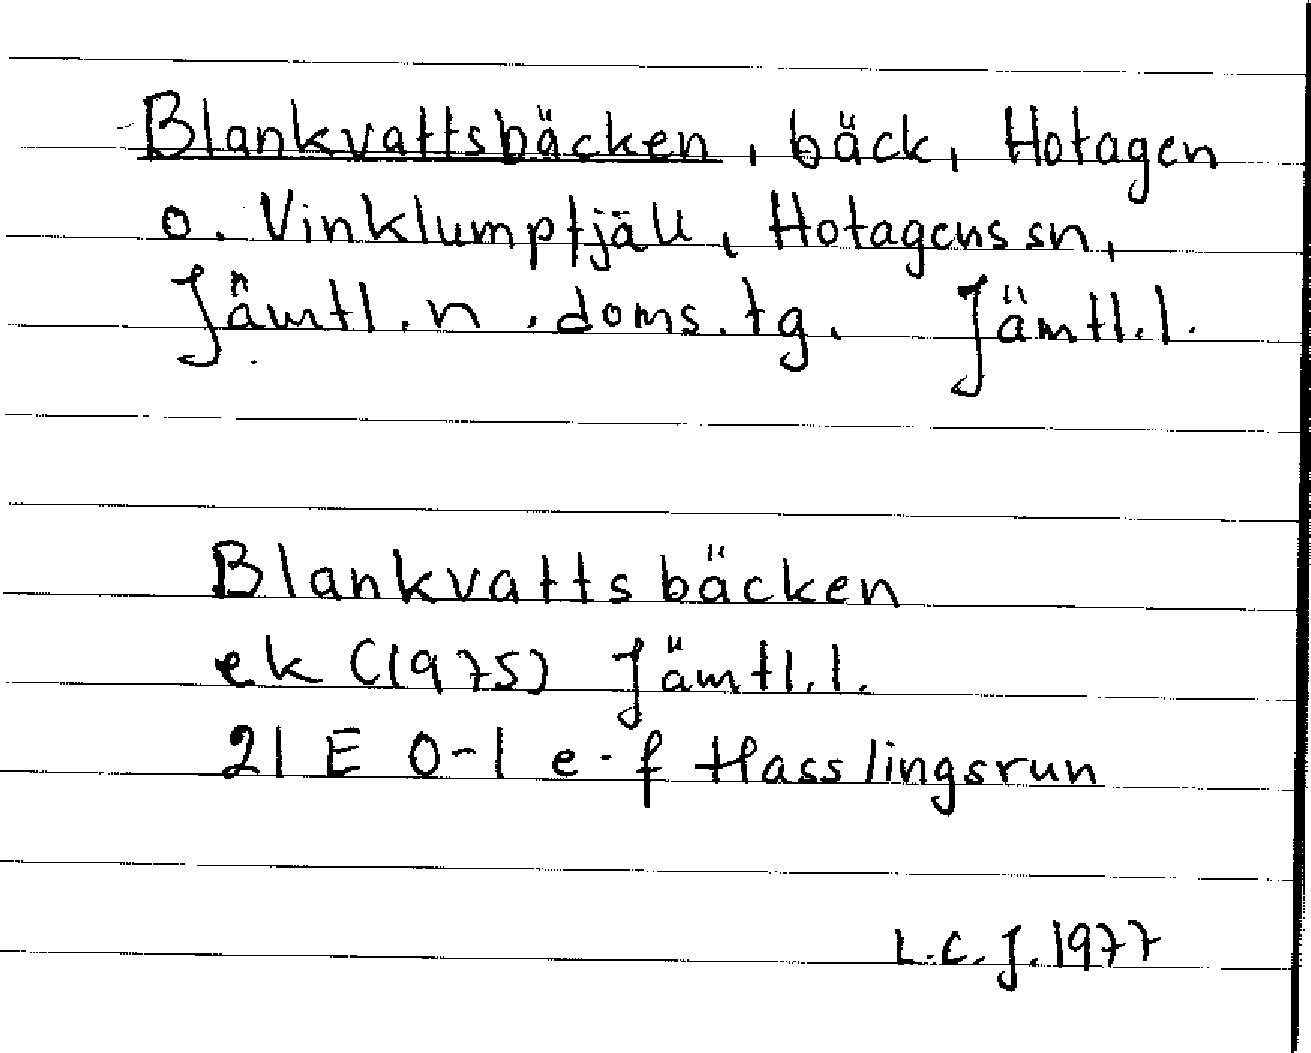 Blankvattsbäcken, bäck, Hotagen
o. Vinklumpfjäll, Hotagens sn,
Jämtl. n. doms. tg. Jämtl. l.
Blankvattsbäcken
ek (1975) Jämtl. l.
21 E 0-1 e-f Hasslingsrun
L.C.J. 1977